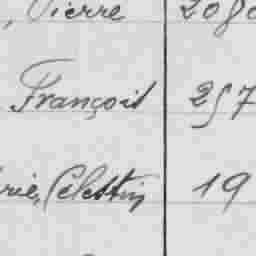 , Pierre 2080
François 257
rie, Célestin 19